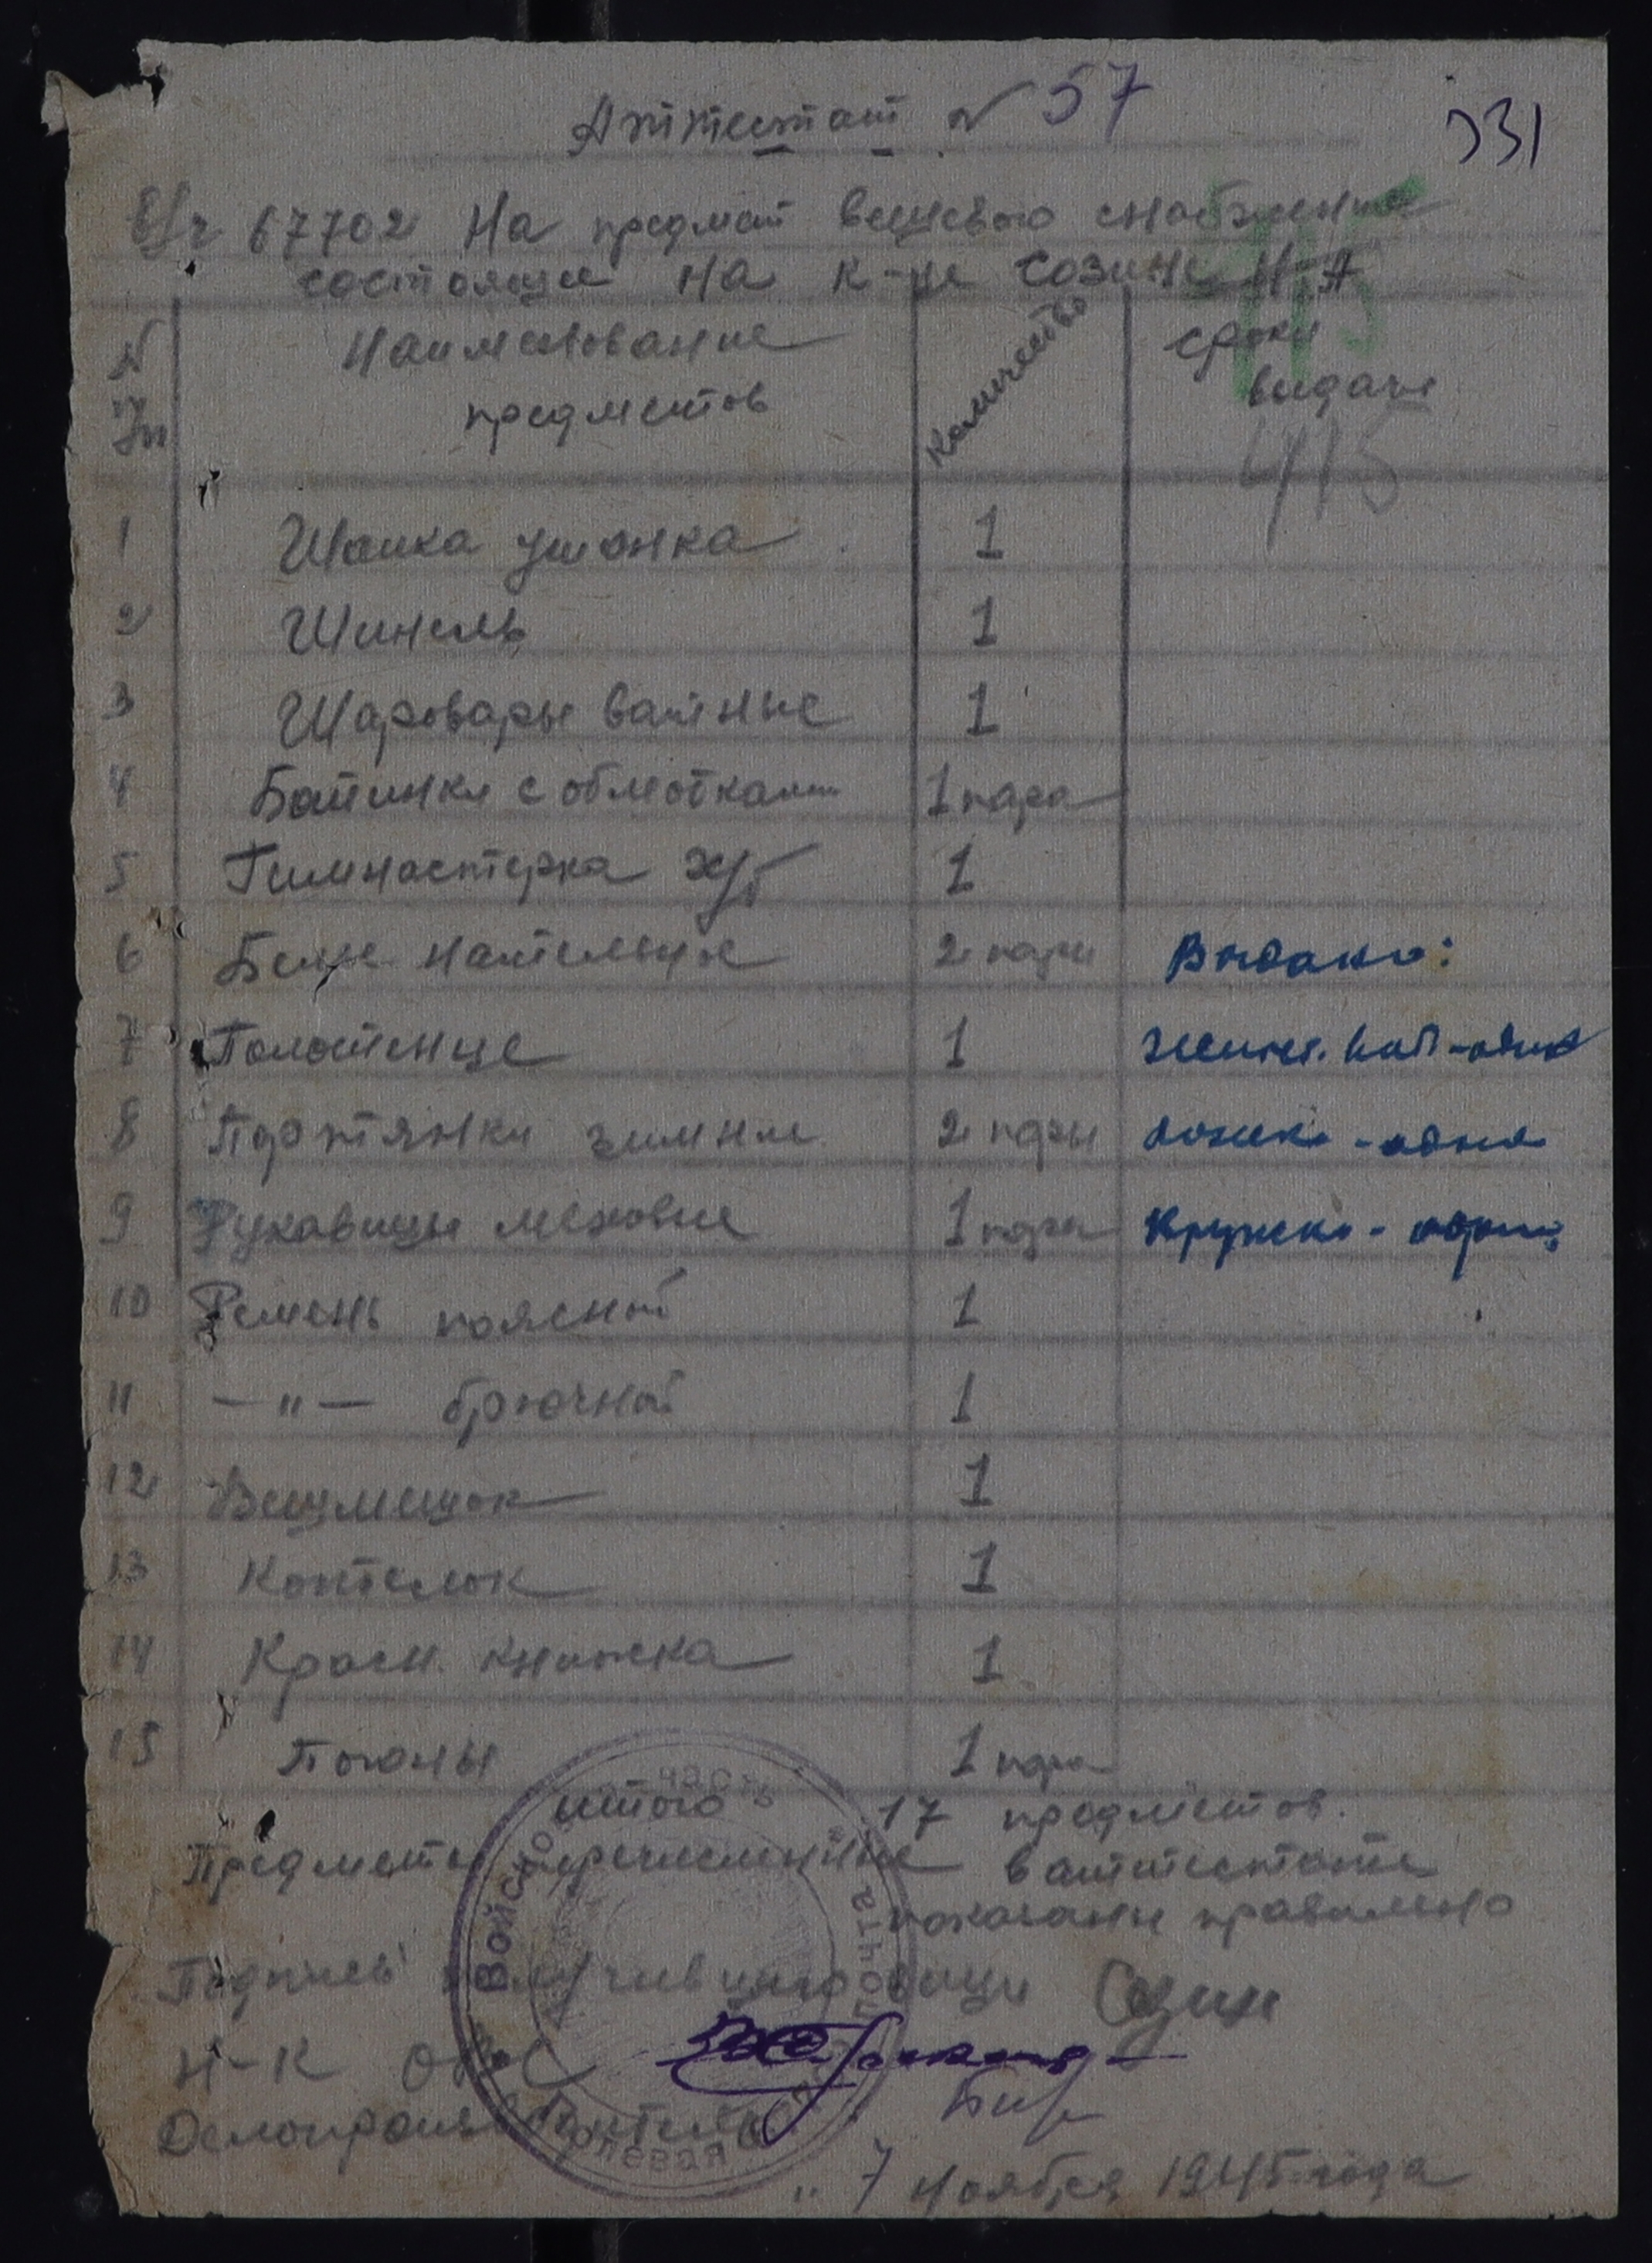 Аттестат № 57
331
В/ч 67702 На предмет вещевого снабжения
состоящие на к-це Созине Н.А
415
№ п/п Наименование предметов Количество сроки выдачи
415
1 Шапка ушанка 1
2 Шинель 1
3 Шаровары ватные 1
4 Ботинки с обмотками 1 пара
5 Гимнастерка х/б 1
6 Белье нательное 2 пары Выдано:
7 Полотенце 1
8 Портянки зимние 2 пары ложка - одна
9 Рукавицы меховые 1 пара Кружка - одна
10 Ремень поясной 1
11 -"- брючной 1
12 Вещмешок 1
13 Котелок 1
14 Красн. книжка 1
15 Погоны 1 пара
итого 17 предметов.
Предметы перечисленные в аттестате
показаны правильно
Подпись получившего вещи Созин
Н-к ОВС
Делопроизводитель
Войсковая часть полевая почта
" 7 ноября 1945 года